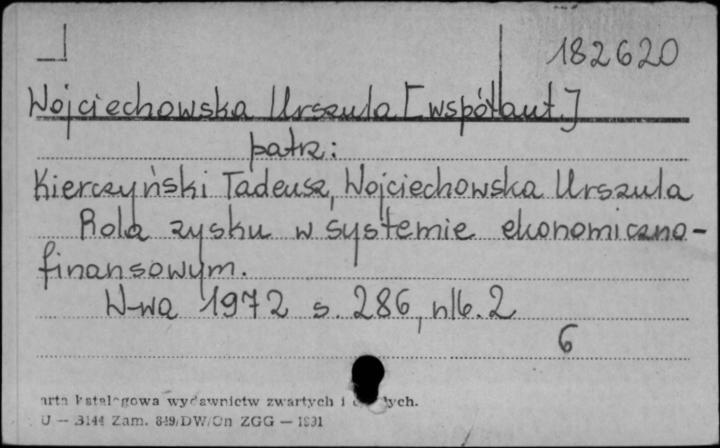 182620
Wojciechowska Urszula [współaut.]
patrz:
Kierczyński Tadeusz, Wojciechowska Urszula
Rola zysku w systemie ekonomiczno-
finansowym.
W-wa 1972 s. 286, nlb. 2
6
arta katalogowa wydawnictw zwartych i
U — 3144 Zam. 849/DW/On ZGG — 1931